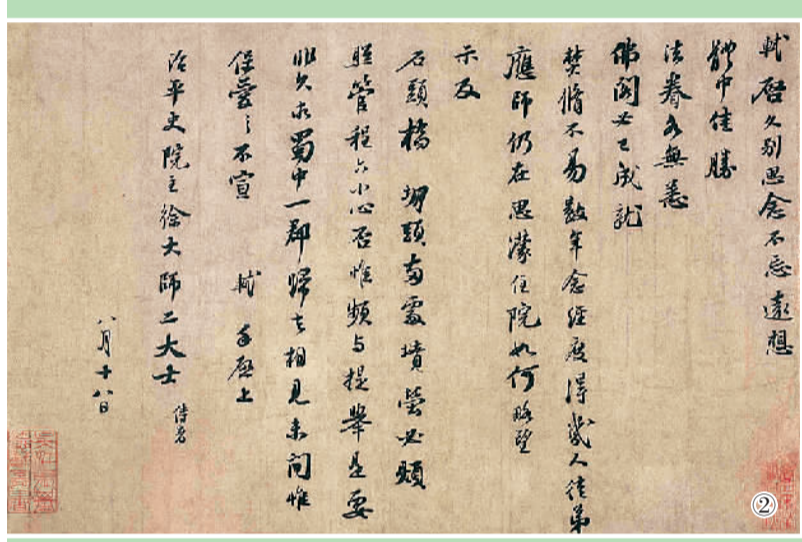 軾啓久别思念不忘遠想
體中佳勝
法眷各無恙
佛閣必已成就
焚脩不易數年念經度得幾人徒弟
應師仍在思濛住院如何略望
示及
石頭橋堋頭兩處墳塋必煩
照管程六小心否惟頻与提舉是要
非久求蜀中一郡歸去相見未間惟
保愛之不宣 軾手啓上
治平史院主徐大師二大士侍者
八月十八日
②